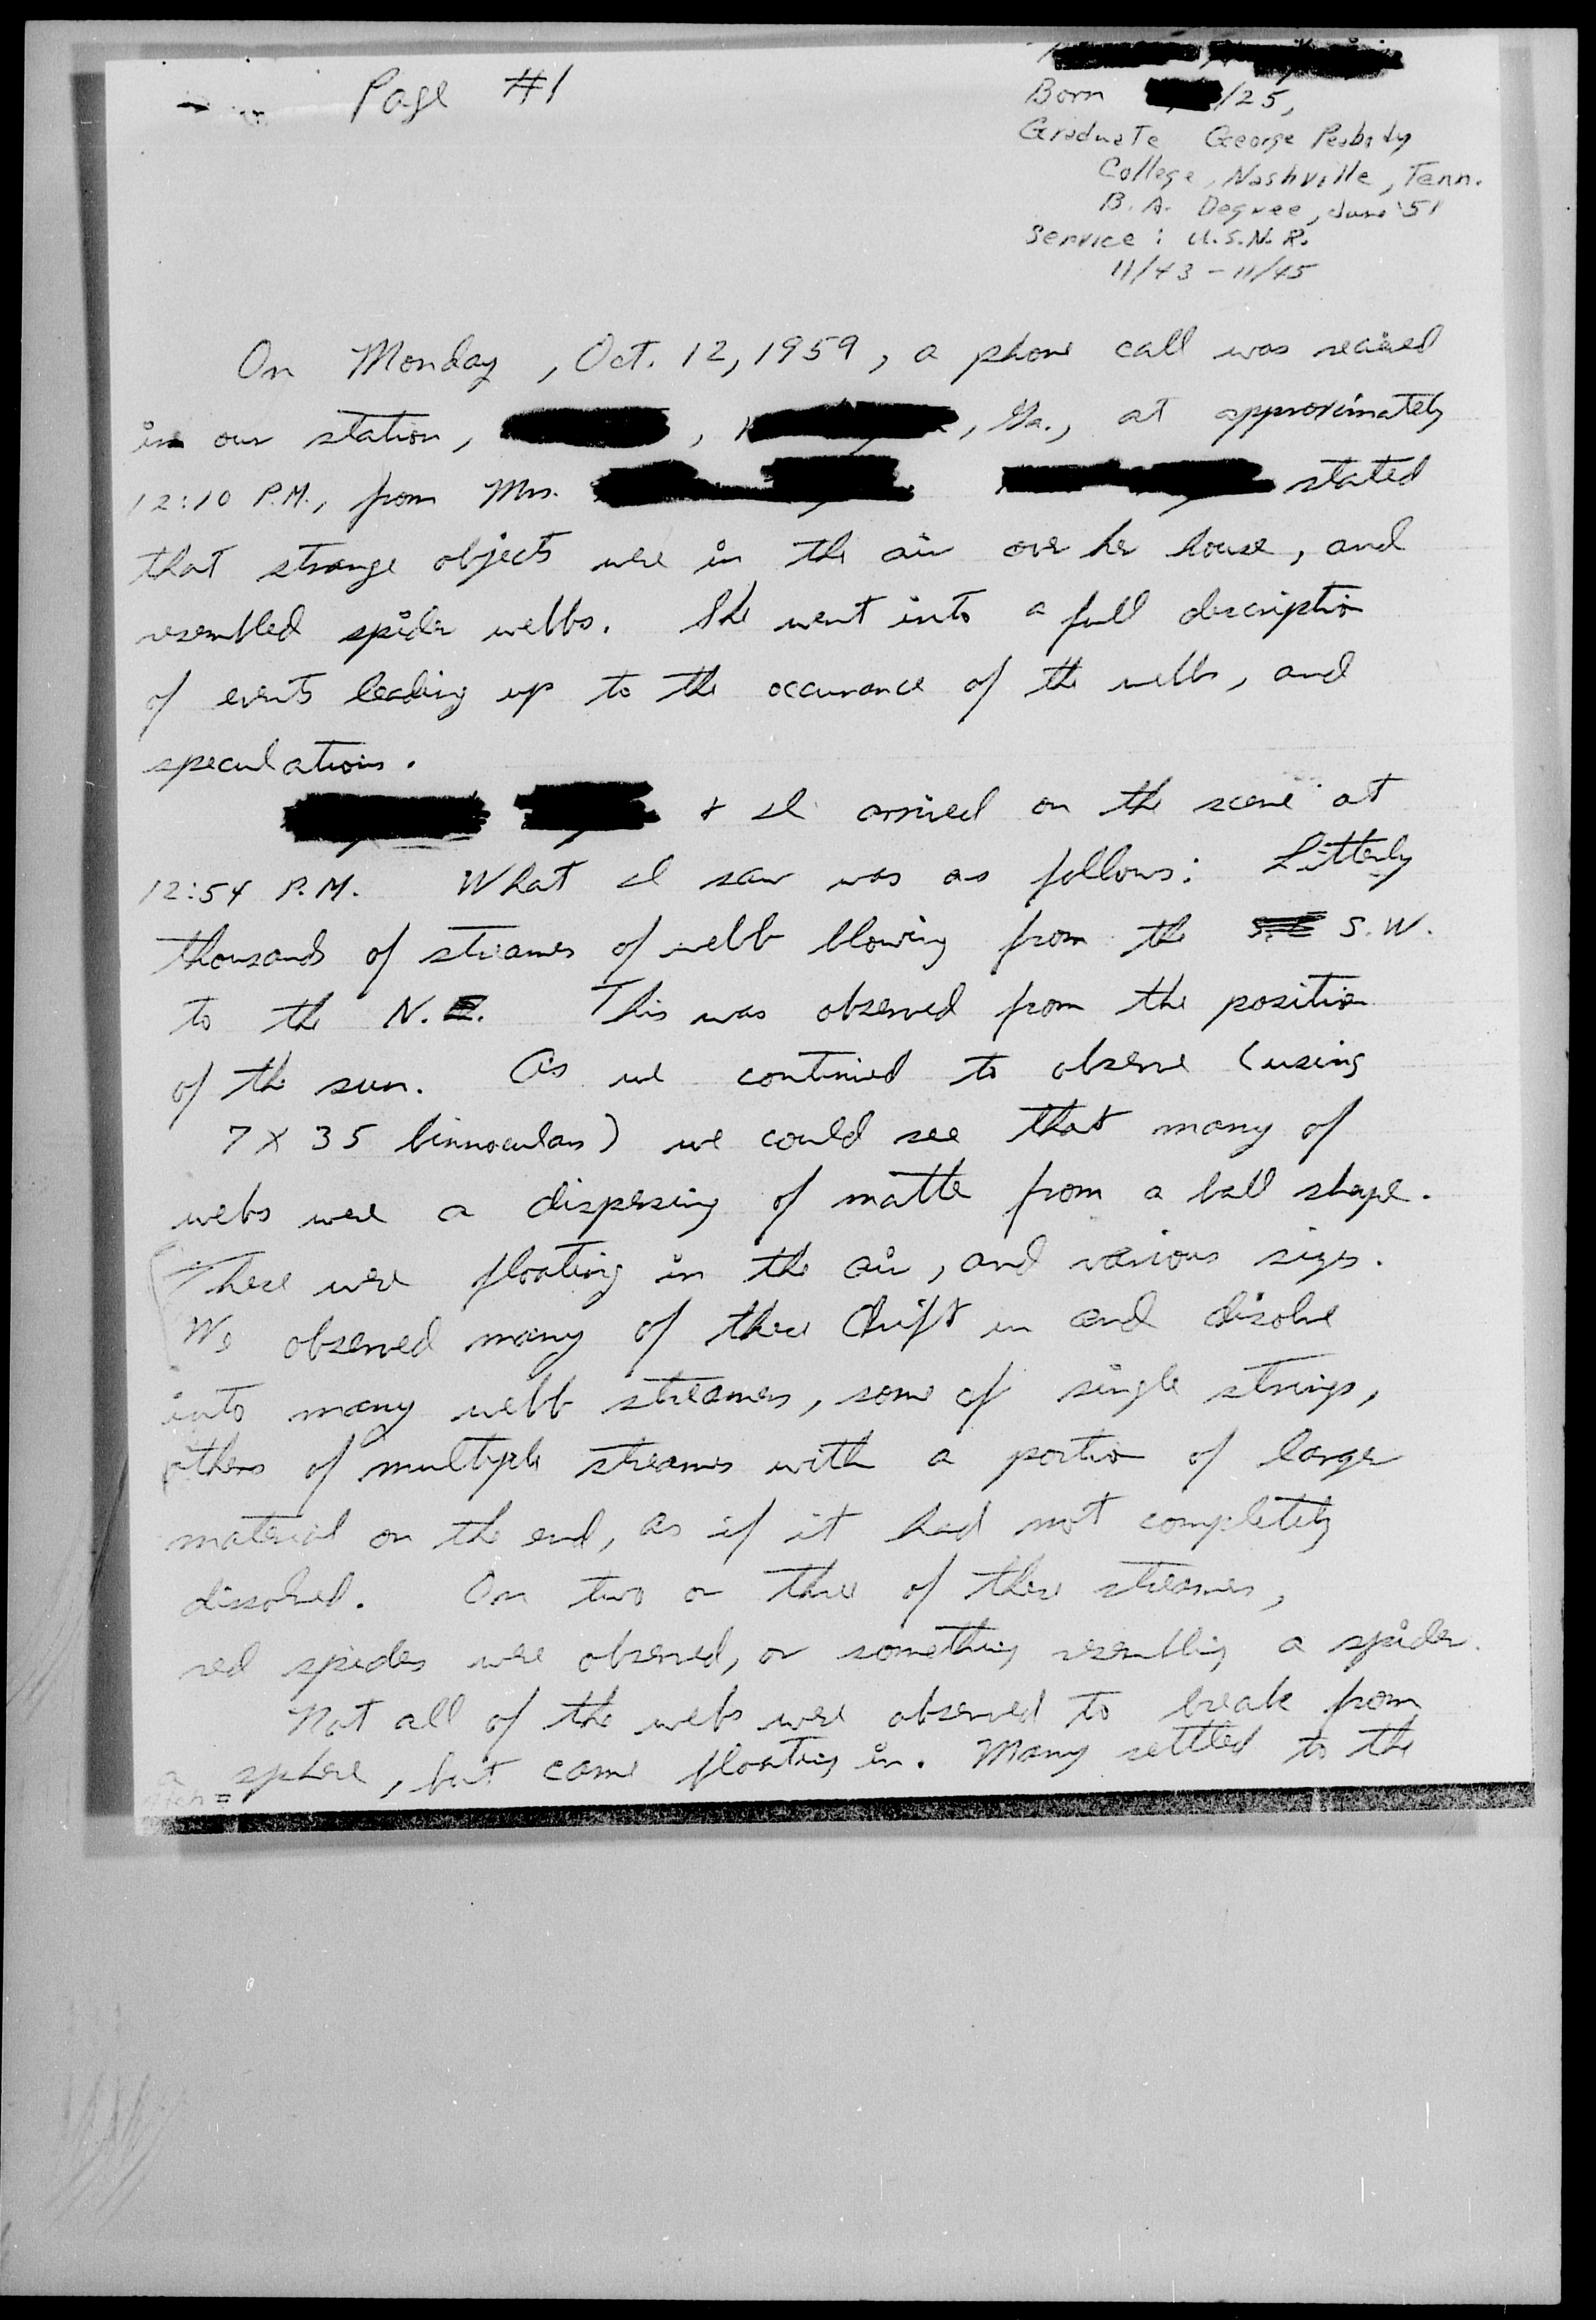 Page #1
Born /25,
Graduate George Peabody
College, Nashville, Tenn.
B. A. Degree, June '51
Service: U.S.N.R.
11/43 - 11/45
On Monday, Oct. 12, 1959, a phone call was recieved
in our station, , , Ga., at approximately
12:10 P.M., from Mrs. stated
that strange objects were in the air over her house, and
resembled spider webbs. She went into a full description
of events leading up to the occurance of the webbs, and
speculations.
& I arrived on the scene at
12:54 P.M. What I saw was as follows: Litterly
thousands of streamers of webb blowing from the S.W.
to the N.E. This was observed from the position
of the sun. As we continued to observe (using
7 x 35 binnoculars) we could see that many of
webs were a dispersing of matter from a ball shape.
These were floating in the air, and various sizes.
We observed many of these drift in and disolve
into many webb streamers, some of single strings,
others of multiple streamers with a portion of larger
material on the end, as if it had not completely
dissolved. On two or three of these streamers,
red spiders were observed, or something resembling a spider.
Not all of the webs were observed to break from
a sphere, but came floating in. Many settled to the